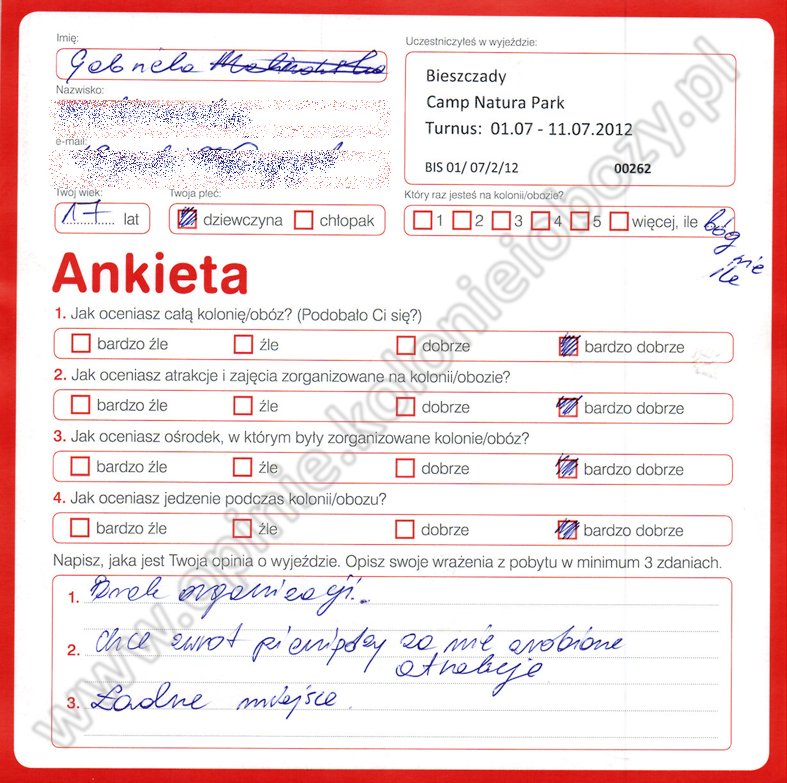 Imię:
Gabriela
Nazwisko:
e-mail:
Twój wiek:
17 lat
Twoja płeć:
dziewczyna chłopak
Uczestniczyłeś w wyjeździe:
Bieszczady
Camp Natura Park
Turnus: 01.07 - 11.07.2012
BIS 01/ 07/2/12 00262
Który raz jesteś na kolonii/obozie?
1 2 3 4 5 więcej, ile bóg
wie
ile
Ankieta
1. Jak oceniasz całą kolonię/obóz? (Podobało Ci się?)
bardzo źle źle dobrze bardzo dobrze
2. Jak oceniasz atrakcje i zajęcia zorganizowane na kolonii/obozie?
bardzo źle źle dobrze bardzo dobrze
3. Jak oceniasz ośrodek, w którym były zorganizowane kolonie/obóz?
bardzo źle źle dobrze bardzo dobrze
4. Jak oceniasz jedzenie podczas kolonii/obozu?
bardzo źle źle dobrze bardzo dobrze
Napisz, jaka jest Twoja opinia o wyjeździe. Opisz swoje wrażenia z pobytu w minimum 3 zdaniach.
1. Brak organizacji.
2. Chce zwrot pieniędzy za nie zrobione
atrakcje
3. Ładne miejsce.
www.opinie.kolonieiobozy.pl